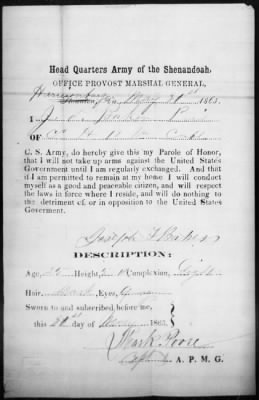 Head Quarters Army of the Shenandoah,
OFFICE PROVOST MARSHAL GENERAL,
Harrisonburg
Staunton, Va., May 20st 1865.
I
OF Co.
C. S. Army, do hereby give this my Parole of Honor,
that I will not take up arms against the United States
Government until I am regularly exchanged. And that
if I am permitted to remain at my home I will conduct
myself as a good and peaceable citizen, and will respect
the laws in force where I reside, and will do nothing to
the detriment of or in opposition to the United States
Goverment.
Joseph
DESCRIPTION:
Age, Height, Complexion, Light
Hair, Dark Eyes,
Sworn to and subscribed before me,
this day of May 1865.
Mark Poore
Capt & A. P. M. G.